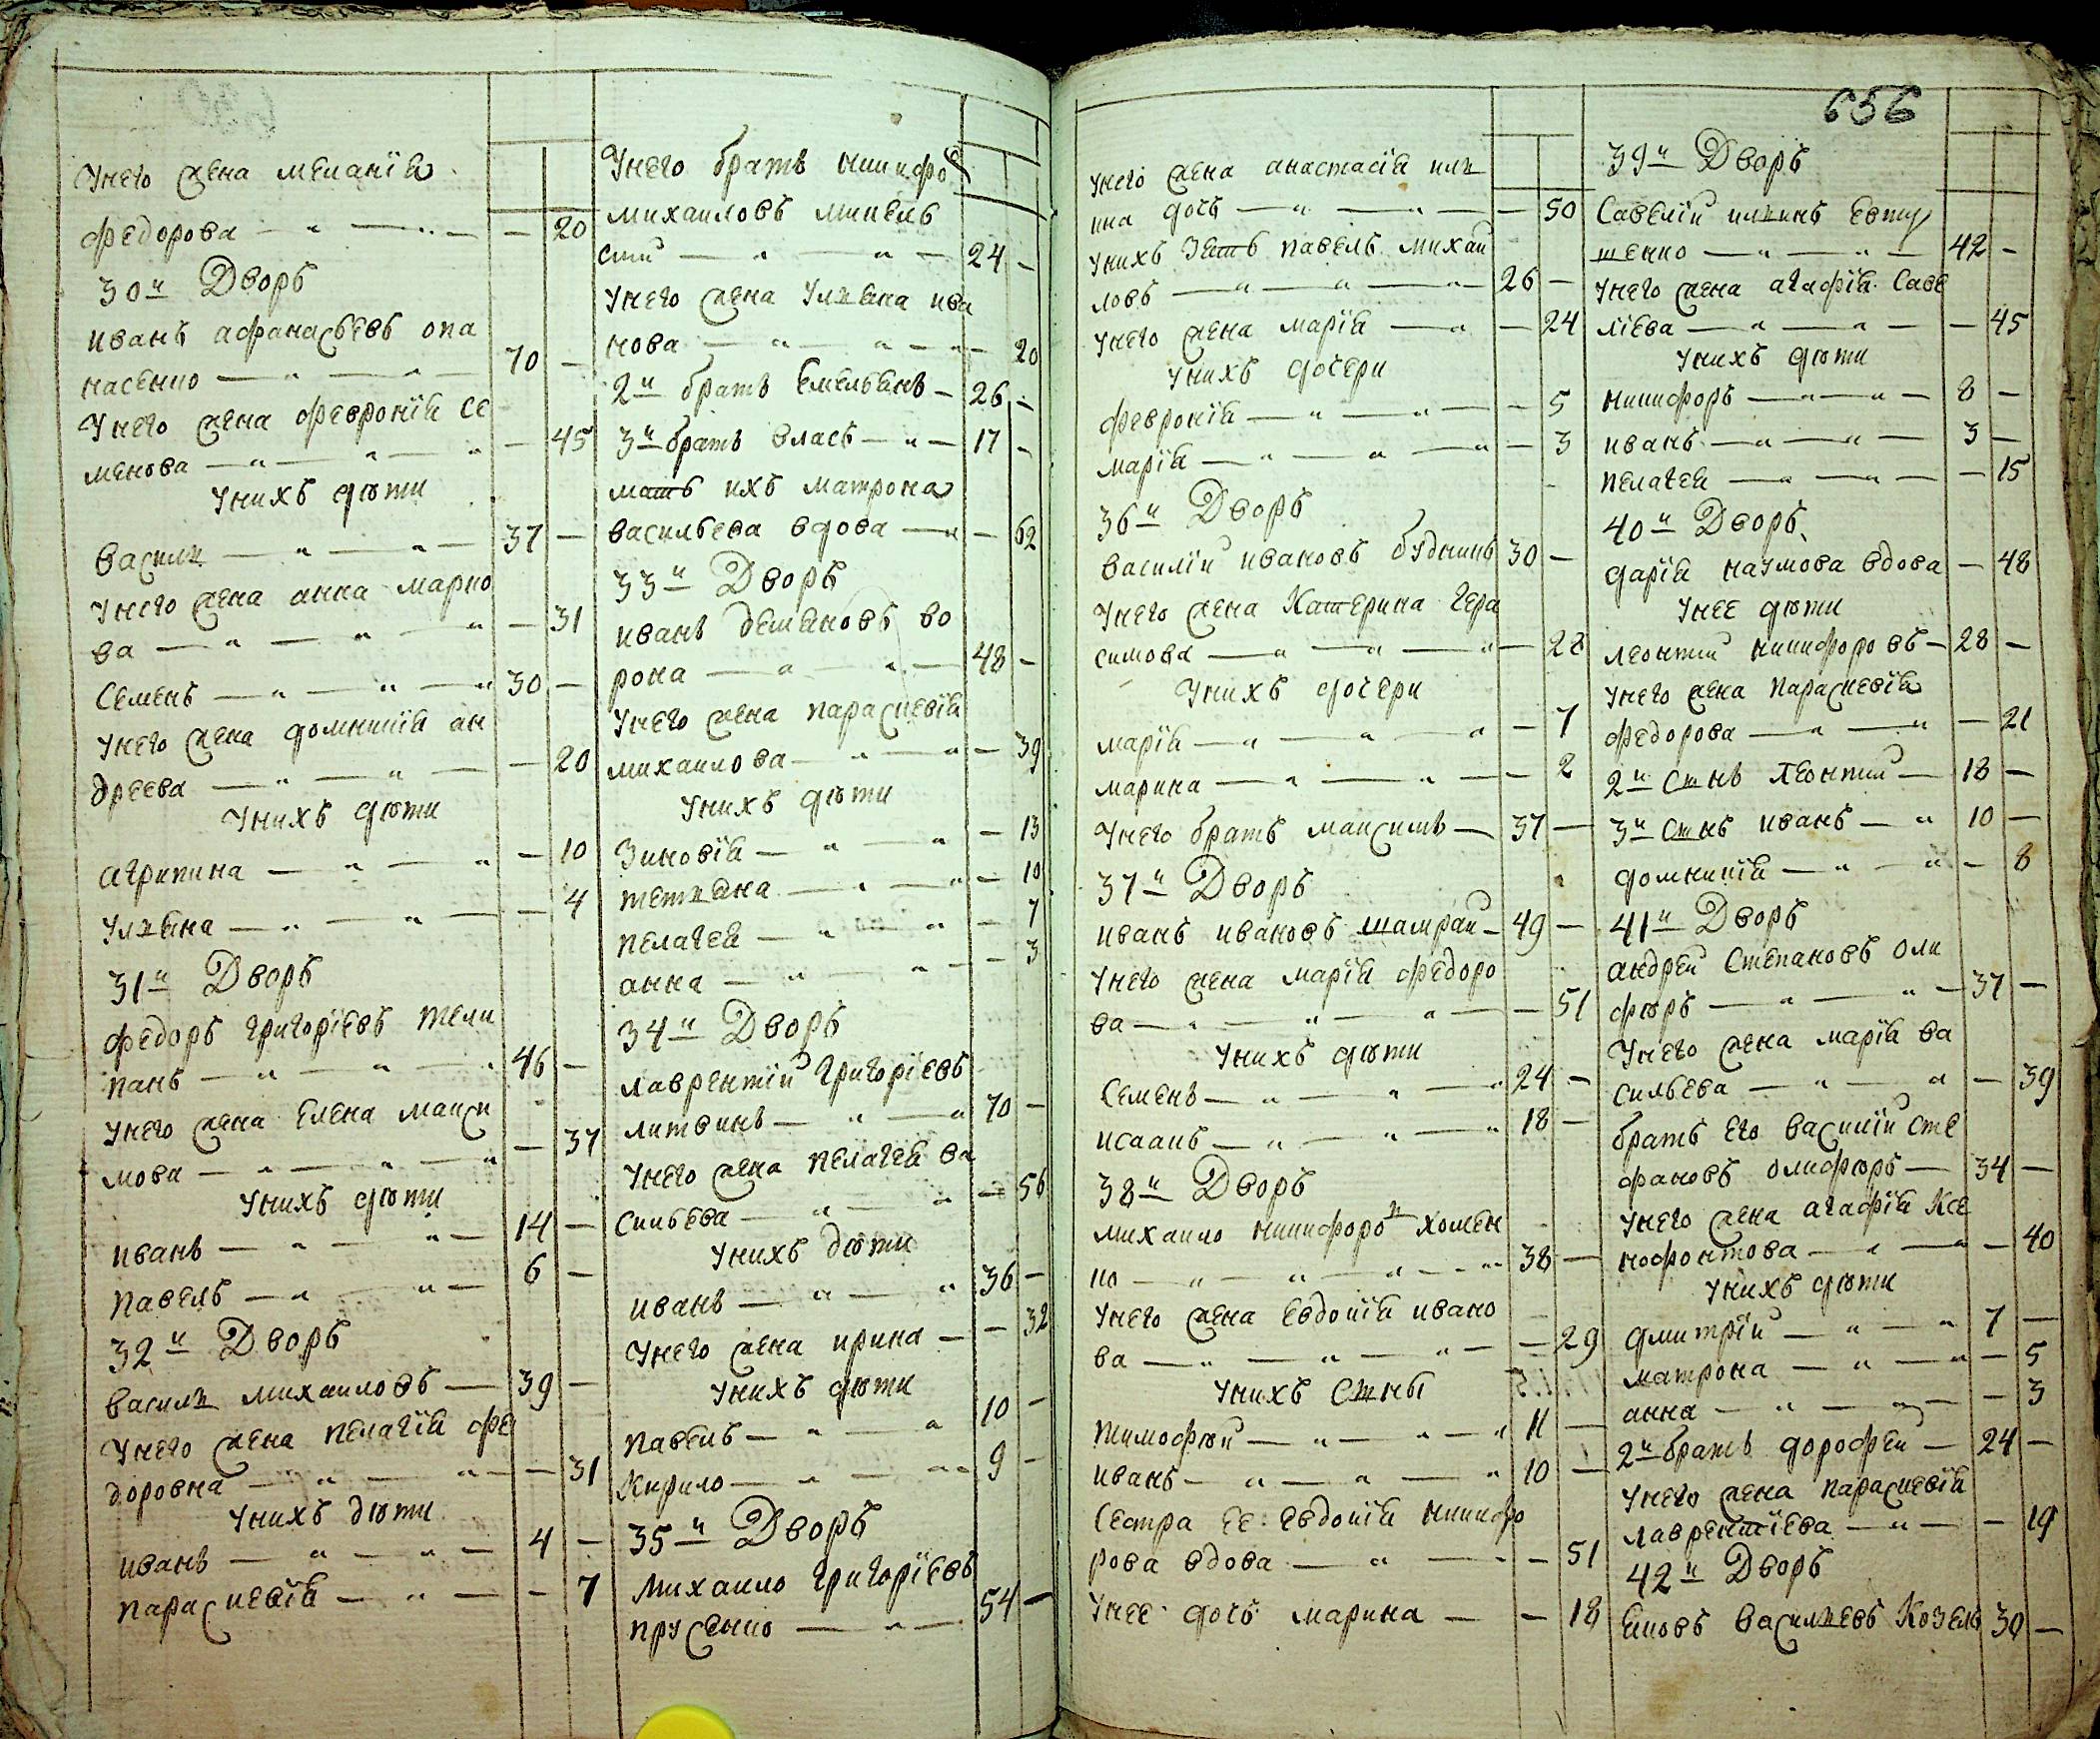 656
Унего жена меланїя
федорова — 20
30й Дворъ
иванъ афанасьевъ опа
насенко — 70 —
Унего жена февронїя се
менова — 45
Унихъ дѣти
василь — 37 —
Унего жена анна марко
ва — 31
Семенъ — 30 —
Унего жена домникїя ан
дреева — 20
Унихъ дѣти
агрипина — 10
Ульяна — 4
31й Дворъ
федоръ григорїевъ жели
панъ — 46 —
Унего жена Елена макси
мова — 37
Унихъ дѣти
иванъ — 14 —
павелъ — 6 —
32й Дворъ
василь михаиловъ — 39 —
Унего жена пелагїя фе
доровна — 31
Унихъ дѣти
иванъ — 4 —
параскевїя — 7
Унего братъ никифо
михаиловъ
24 —
Унего жена Ульяна ива
нова — 20
2й братъ Емельянъ — 26 —
3й братъ власъ — 17 —
мать ихъ матрона
васильева вдова — 62
33й Дворъ
иванъ демяновъ во
рона — 48 —
Унего жена параскевїя
михаилова — 39
Унихъ дѣти
Зиновїя — 13
тетяна — 10
пелагея — 7
анна — 3
34й Дворъ
лаврентїй григорїевъ
литвинъ — 70 —
Унего жена пелагея ва
сильева — 56
Унихъ дѣти
иванъ — 36 —
Унего жена ирина — 32
Унихъ дѣти
павелъ — 10 —
Кирило — 9 —
35й Дворъ
Михаило григорїевъ
прусенко — 54 —
Унего жена анастасїя иль
ина дочь — 50
Унихъ зять павелъ михаи
ловъ — 26 —
Унего жена марїя — 24
Унихъ дочери
февронїя — 5
марїя — 3
36й Дворъ
василїй ивановъ будникъ 30 —
Унего жена Катерина гера
симова — 28
Унихъ дочери
марїя — 7
марина — 2
Унего братъ максимъ — 37 —
37й Дворъ
иванъ ивановъ шамрай — 49 —
Унего жена марїя федоро
ва — 51
Унихъ дѣти
Семенъ — 24 —
исаакъ — 18 —
38й Дворъ
михаило никифоровъ хомен
ко — 38 —
Унего жена Евдокїя ивано
ва — 29
Унихъ Сыны
тимофѣй — 11 —
иванъ — 10 —
Сестра ее Евдокїя никифо
рова вдова — 51
Унее дочь марина — 18
39й Дворъ
Савелїй илинъ Евту
шенко — 42 —
Унего жена агафїя Саве
лїева — 45
Унихъ дѣти
никифоръ — 8 —
иванъ — 3 —
пелагея — 15
40й Дворъ
дарїя наумова вдова — 48
Унее дѣти
леонтий никифоровъ — 28 —
Унего жена параскевїя
федорова — 21
2й сынъ леонтий — 18 —
3й сынъ иванъ — 10 —
домникїя — 8
41й Дворъ
андрей Степановъ оли
фѣръ — 37 —
Унего жена марїя ва
сильева — 39
братъ его василїй сте
фановъ олифѣръ — 34 —
Унего жена агафїя Ксе
нофонтова — 40
Унихъ дѣти
дмитрїй — 7 —
матрона — 5
анна — 3
2й братъ дорофей — 24 —
Унего жена параскевїя
лаврентїева — 19
42й Дворъ
Яковъ васильевъ Козелъ 30 —